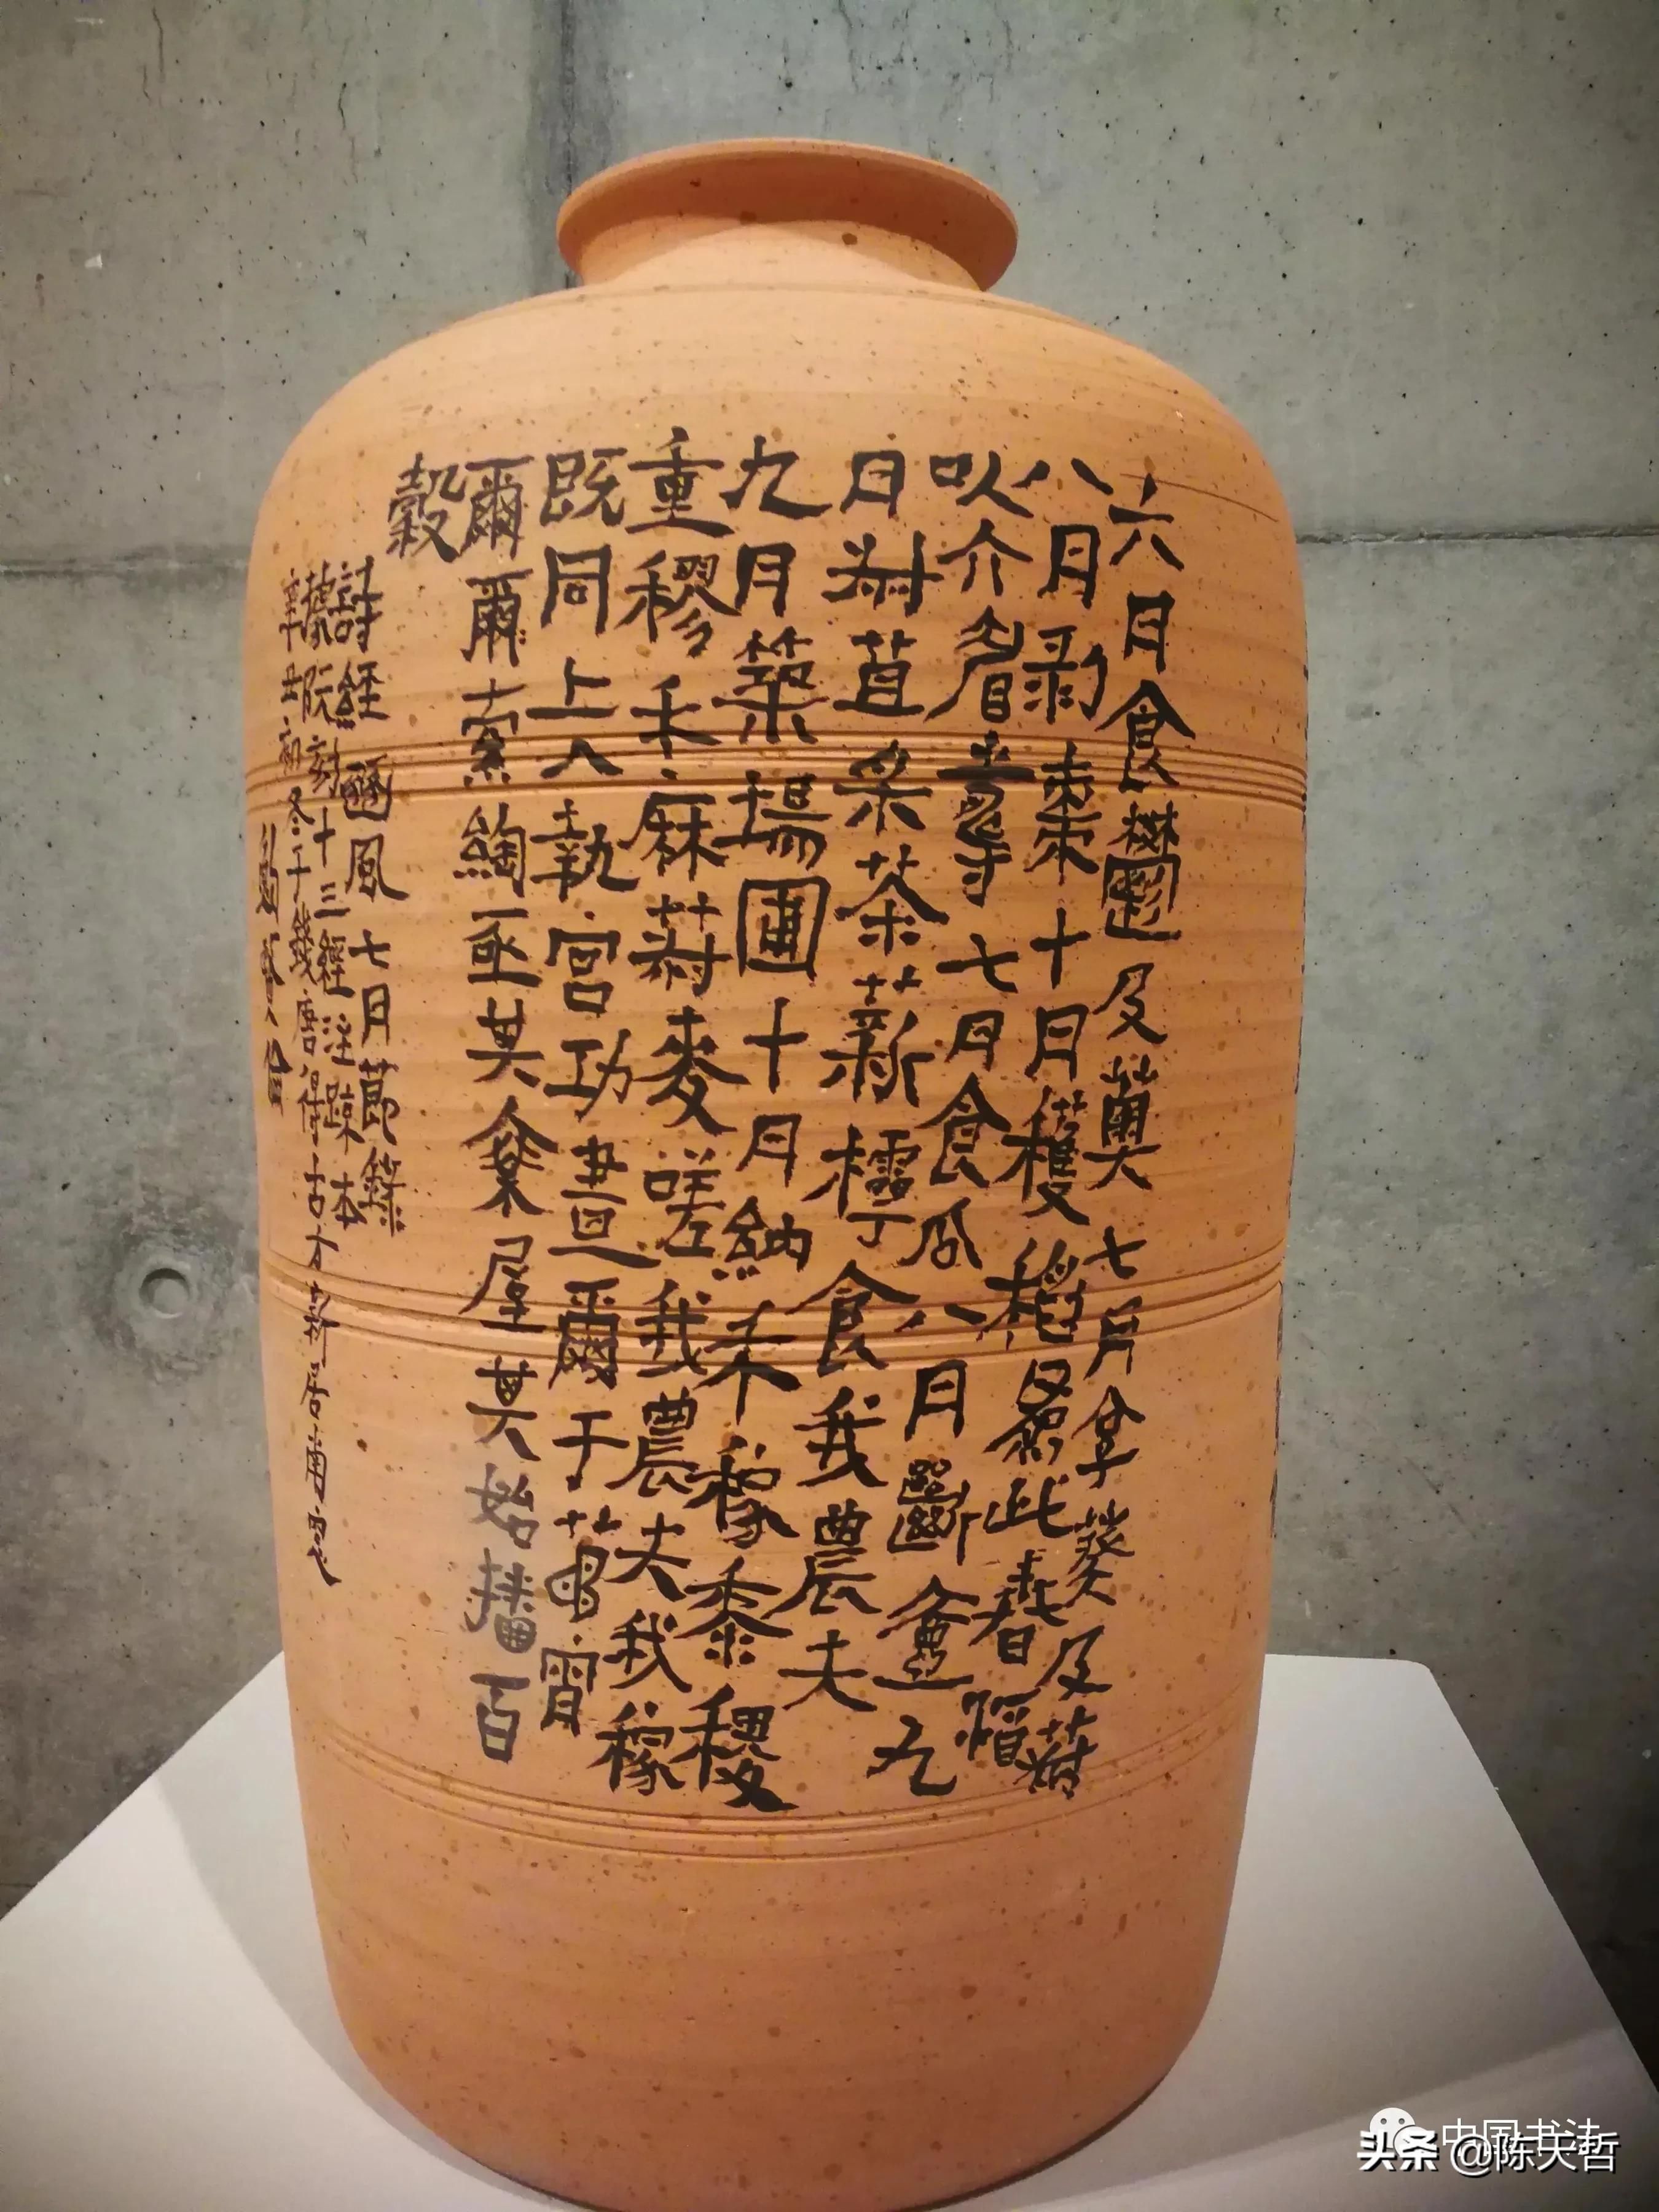 六月食鬱及薁七月亨葵及菽
八月剥棗十月穫稻爲此春酒
以介眉壽七月食瓜八月斷壺九
月叔苴采荼薪樗食我農夫
九月築場圃十月納禾稼黍稷
重穋禾麻菽麥嗟我農夫我稼
既同上入執宮功晝爾于茅宵
爾爾索綯亟其乘屋其始播百
穀
詩經豳風七月節錄
據阮刻十三經注疏本
辛丑初冬于錢唐得古
中国书法
头条 @陈天哲